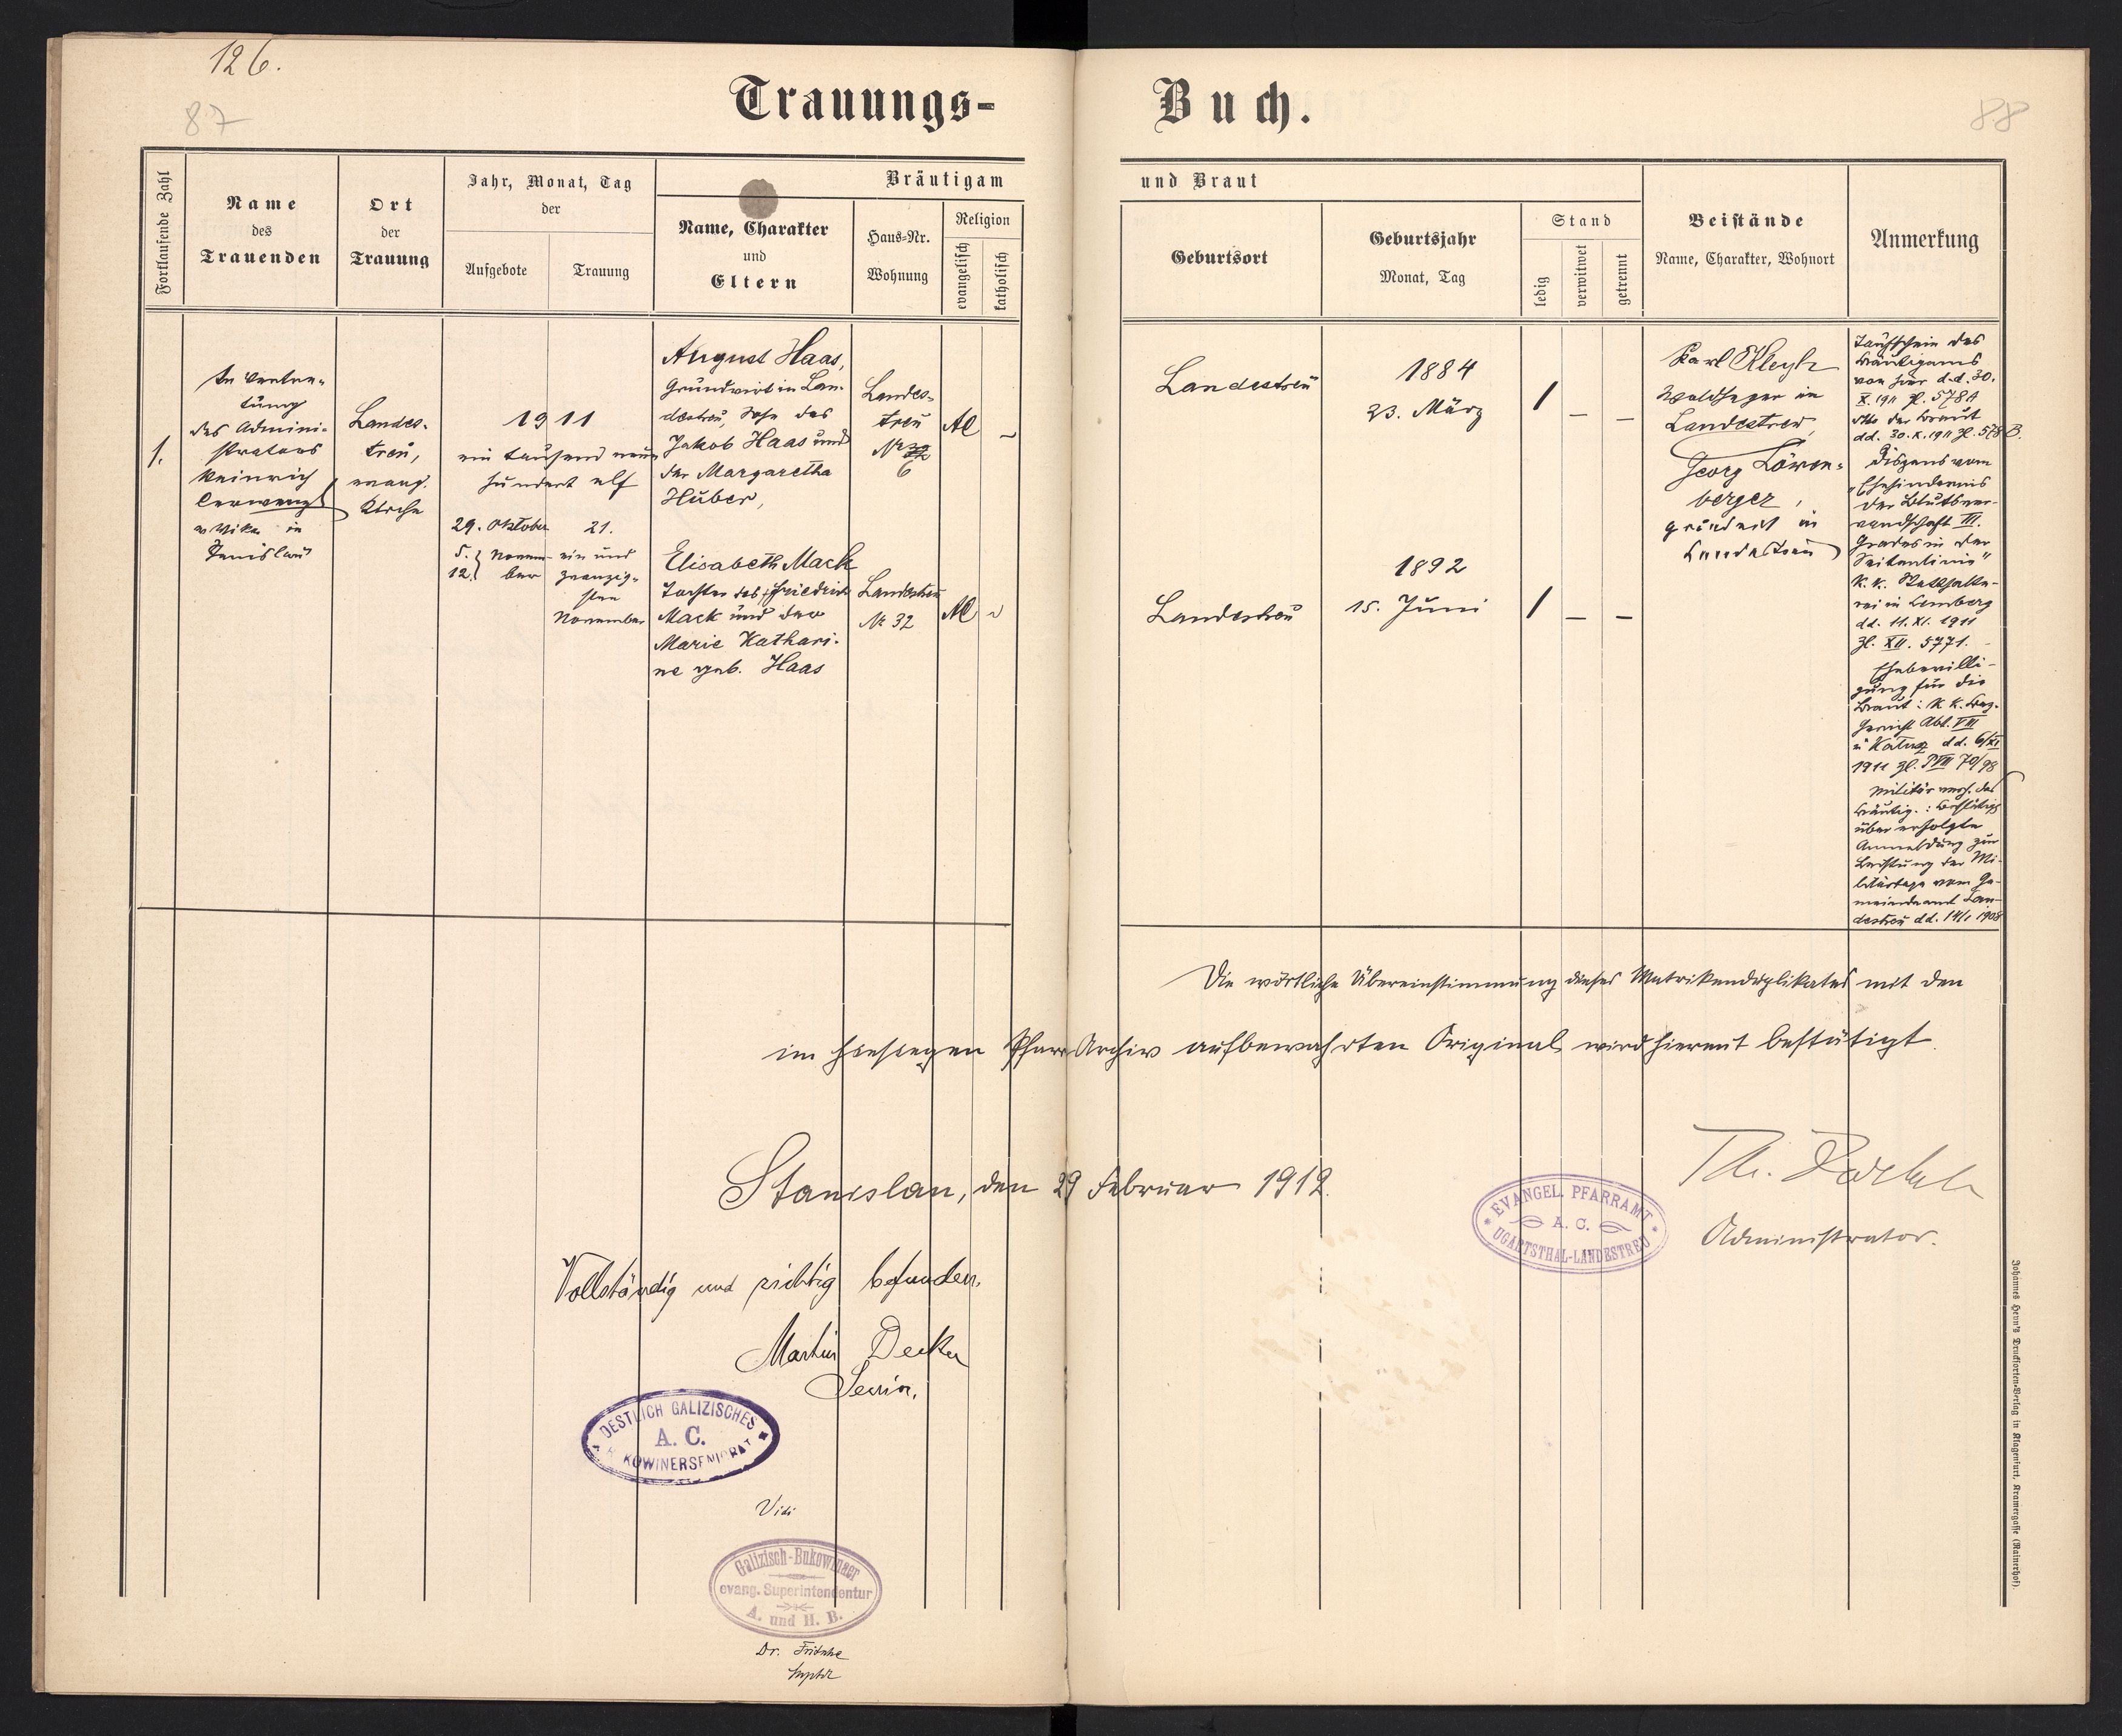 126.
87
88
Trauungs-
Buch.
Fortlaufende Zahl
Name
des
Trauenden
Ort
der
Trauung
Jahr, Monat, Tag
der
Aufgebote
Trauung
Bräutigam
Name, Charakter
und
Eltern
Haus-Nr.
Wohnung
Religion
evangelisch
katholisch
und Braut
Geburtsort
Geburtsjahr
Monat, Tag
Stand
ledig
verwitwet
getrennt
Beistände
Name, Charakter, Wohnort
Anmerkung
1.
In Vertre-
tung
des Admini-
strators
Heinrich
in
Stanislau
Landes-
treu,
evang.
Kirche
1911
ein tausend neun
hundert elf
29. Oktober
5. } Novem-
12. } ber
21.
ein und
zwanzig-
sten
November
August Haas,
Grundwirt in Lan-
destreu, Sohn des
Jakob Haas und
der Margaretha
Huber,
Landes-
treu
Nr
6
AC
–
Elisabeth Mack
Tochter des Friedrich
Mack und der
Marie Kathari-
ne geb. Haas
Landestreu
Nr 32
AC
Landestreu
1884
23. März
/ – –
Landestreu
1892
15. Juni
/ – –
Karl
Waldheger in
Landestreu,
Georg Löwen-
berger,
Grundwirt in
Landestreu
Taufschein des
Bräutigams
von hier d.d. 30.
X. 1911 Zl. 578A
dto der Braut
dd. 30. X. 1911 Zl. 578B.
Dispens vom
"Ehehindernis
der Blutsver-
wandschaft III.
Grades in der
Seitenlinie"
k. k. Statthalte-
rei in Lemberg
dd. 11. XI. 1911
Zl. XII. 5771.
Ehebewilli-
gung für die
Braut: k. k. Bez.
Gericht Abt. VIII
in Kalusz dd. 6/XI
1911 Zl. P VIII 70/98
Militärverh. des
Bräutig.: Bestätig
über erfolgte
Anmeldung zur
Leistung der Mi-
litärtaxe vom Ge-
meindeamt Lan-
destreu dd. 14/1 1908
Die wörtliche Übereinstimmung dieses Matrikenduplikates mit den
im hiesigen Pfarr-Archiv aufbewahrten Original wird hiermit bestätigt.
Stanislau, den 29 Februar 1912.
Th.
Administrator.
EVANGEL. PFARRAMT
A. C.
UGARTSTHAL-LANDESTREU
Vollständig und richtig befunden.
Martin Decker
Senior.
OESTLICH GALIZISCHES
A. C.
KOWINERSENIORAT
Vidi
Galizisch-Bukowinaer
evang. Superintendentur
A. und H. B.
Dr. Fritsche
Suptdt
Johannes Heyn's Drucksorten-Verlag in Klagenfurt, Kramergasse (Rainerhof).